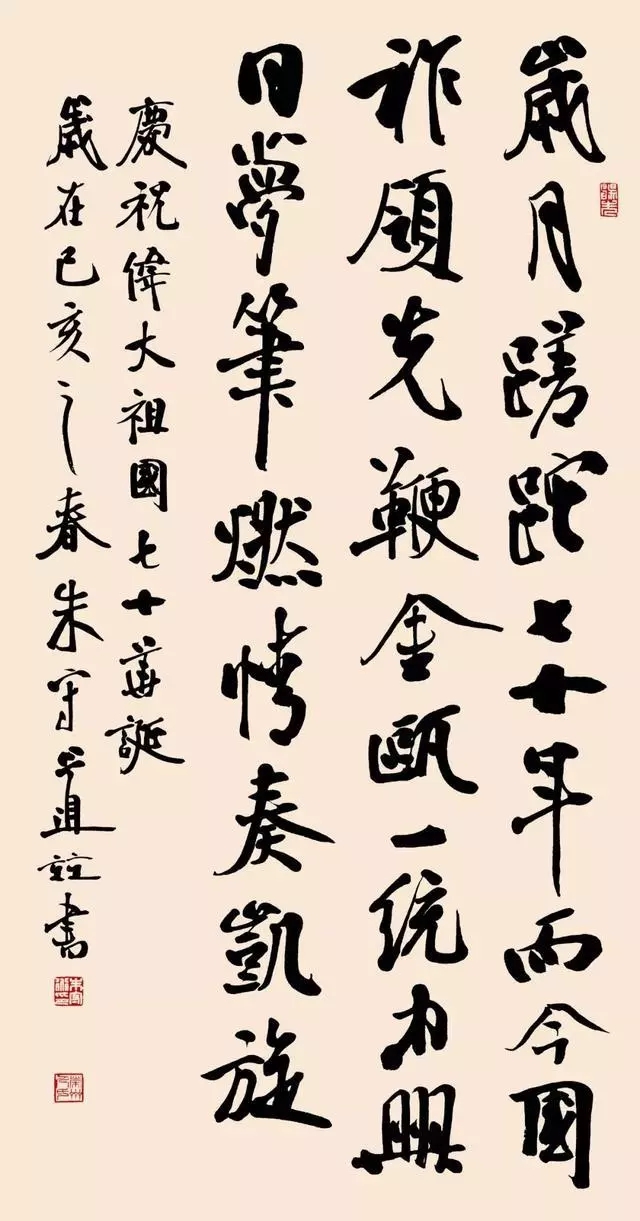 歲月蹉跎七十年而今國
祚領先鞭金甌一統中興
日夢筆燃情奏凱旋
慶祝偉大祖國七十華誕
歲在己亥之春朱守道並書